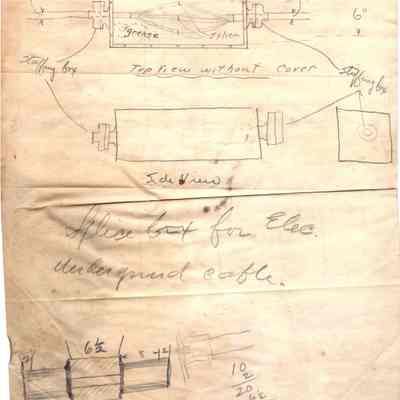 6"
Grease
Splice
Stuffing box
Top View without Cover
Stuffing box
Side View
Splice box for Elec.
Underground cable.
6½
10
2
20